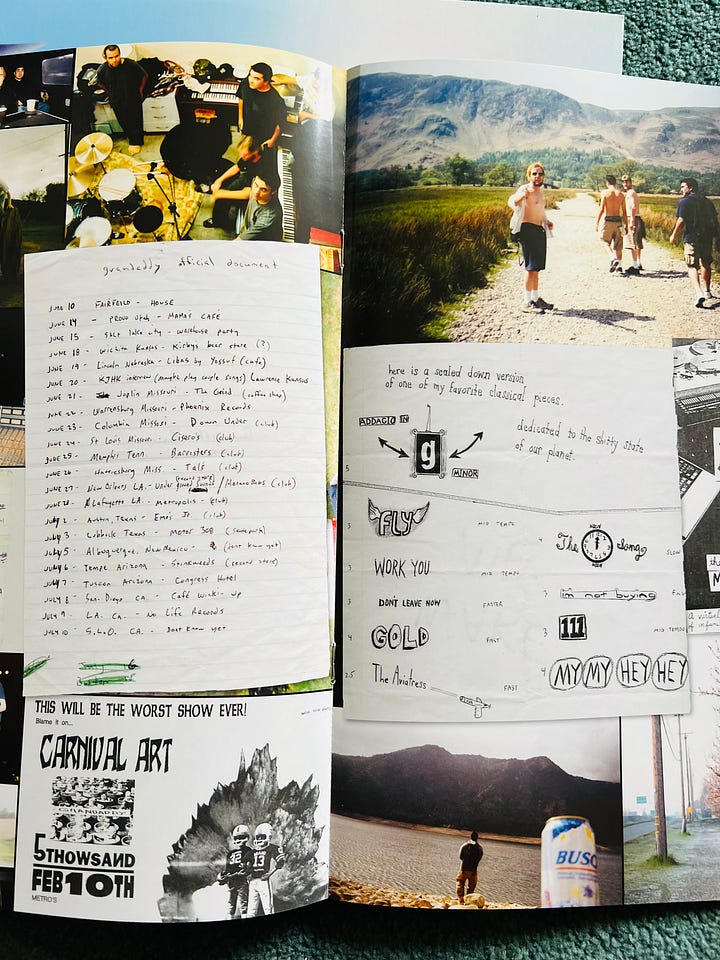 grandaddy official document
JUNE 10 FAIRFEILD - HOUSE
JUNE 14 - PROVO Utah - MAMA'S CAFÉ
JUNE 15 - SALT lake city - warehouse party
JUNE 18 - Wichita Kansas - Kirbys beer store (?)
JUNE 19 - Lincoln Nebraska - Libas by Yossuf (cafe)
JUNE 20 - KJHK interview (maybe play couple songs) Lawrence Kansas
JUNE 21 - Joplin Missouri - The Grind (coffee shop)
JUNE 22 - Warrensburg Missouri - Phoenix Records
JUNE 23 - Columbia Missouri - Down Under (club)
JUNE 24 - St Louis Missouri - Cicero's (club)
JUNE 25 - Memphis Tenn - Barristers (club)
JUNE 26 - Hattiesburg Miss. - Tal's (club)
JUNE 27 - New Orleans LA. - Under (record store) / (club)
JUNE 28 - Lafayette LA. - Metropolis - (club)
July 2 - Austin Texas - Emo's Jr. (club)
July 3 - Lubbock Texas - Motor 308
July 5 - Albuquerque, New Mexico - ? (dont know yet)
July 6 - Tempe Arizona - Stinkweeds (record store)
JULY 7 - Tuscon Arizona - Congress Hotel
JULY 8 - San Diego CA. - Café Wiki-up
JULY 9 - LA. CA. - No Life Records
JULY 10 - S.L.O. CA. - Dont know yet
here is a scaled down version
of one of my favorite classical pieces.
ADDAGIO IN
g
MINOR
dedicated to the shitty state
of our planet.
5
3 FLY MID TEMPO
4 The NOON song SLOW
3 WORK YOU MID TEMPO
3 DON'T LEAVE NOW FASTER
3 im not buying
4 GOLD FAST
3 111 MID TEMPO
2.5 The Aviatress FAST
4 MY MY HEY HEY
THIS WILL BE THE WORST SHOW EVER!
Blame it on...
CARNIVAL ART
GRANDADDY
5THOWSAND
FEB 10TH
METRO'S
32 13
BUSC